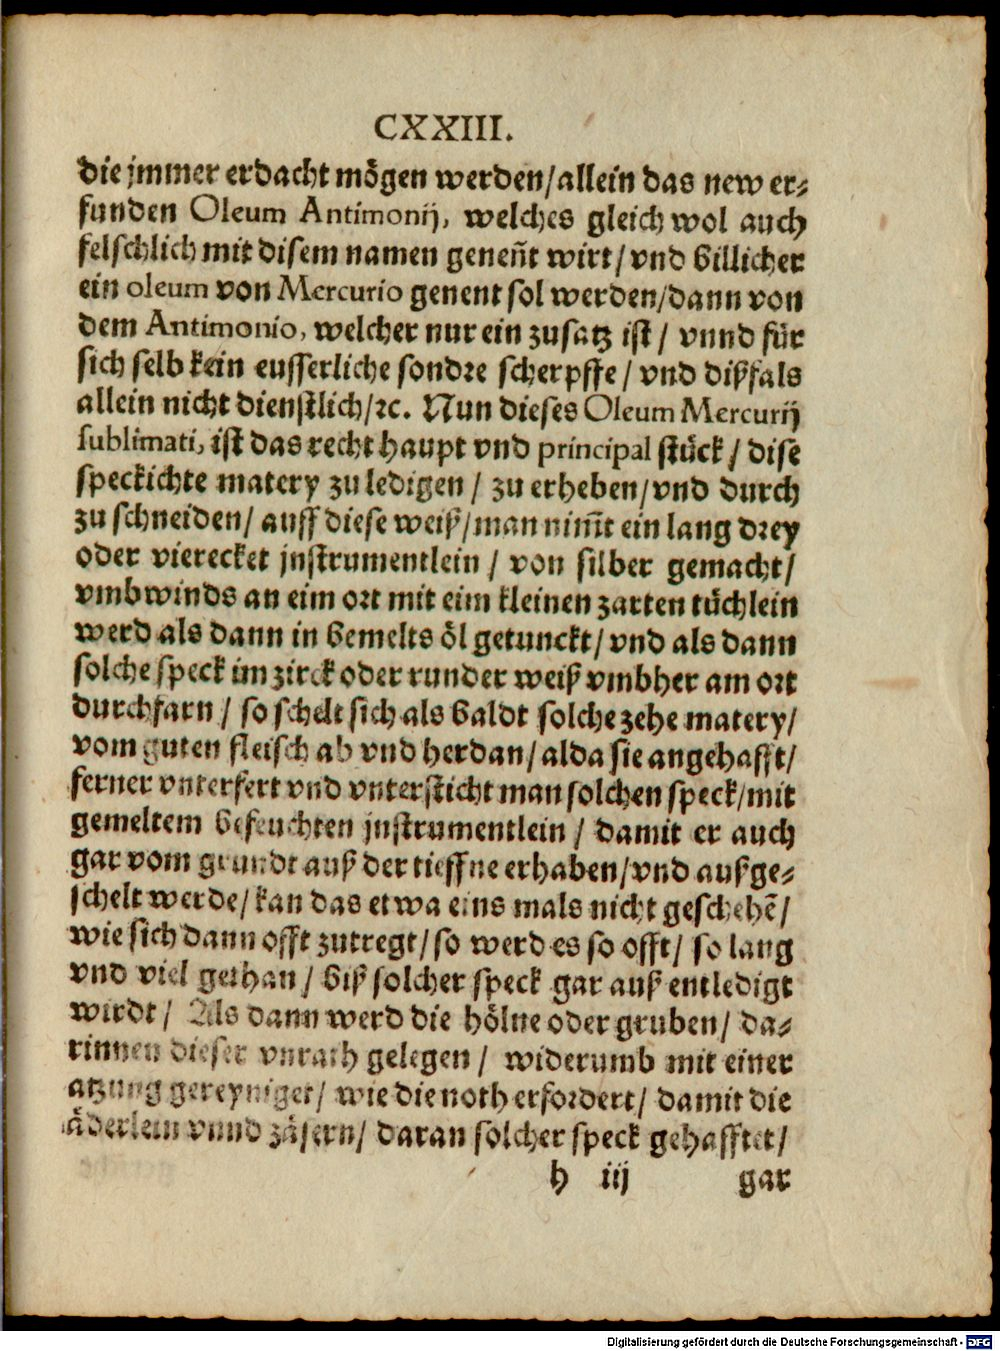 CXXIII.
die jmmer erdacht mögen werden/allein das new er⸗
funden Oleum Antimonij, welches gleich wol auch
felschlich mit disem namen genen̄t wirt/vnd billicher
ein oleum von Mercurio genent sol werden/dann von
dem Antimonio, welcher nur ein zusatz ist/ vnnd für
sich selb kein eusserliche sondre scherpffe/ vnd dißfals
allein nicht dienstlich/ꝛc. Nun dieses Oleum Mercurij
sublimati, ist das recht haupt vnd principal stück/ dise
speckichte matery zu ledigen/ zu erheben/vnd durch
zu schneiden/ auff diese weiß/man nim̄t ein lang drey
oder vierecket jnstrumentlein/ von silber gemacht/
vmbwinds an eim ort mit eim kleinen zarten tüchlein
werd als dann in bemelts öl getunckt/vnd als dann
solche speck im zirck oder runder weiß vmbher am ort
durchfarn/ so schelt sich als baldt solche zehe matery/
vom guten fleisch ab vnd herdan/alda sie angehafft/
ferner vnterfert vnd vntersticht man solchen speck/mit
gemeltem befeuchten jnstrumentlein/ damit er auch
gar vom grundt auß der tieffne erhaben/vnd außge⸗
schelt werde/kan das etwa eins mals nicht geschehē/
wie sich dann offt zutregt/so werd es so offt/ so lang
vnd viel gethan/ biß solcher speck gar auß entledigt
wirdt/ Als dann werd die hölne oder gruben/ da⸗
rinnen dieser vnrath gelegen/ widerumb mit einer
atzung gereyniget/ wie die noth erfordert/ damit die
äderlein vnnd zäsern/ daran solcher speck gehafftet/
h iij gar
Digitalisierung gefördert durch die Deutsche Forschungsgemeinschaft - DFG